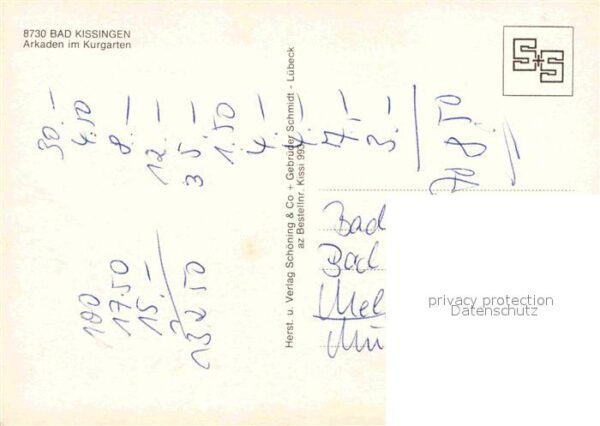 8730 BAD KISSINGEN
Arkaden im Kurgarten
S+S
30.-
4.50
8.-
12.-
35
1.50
4.-
4.-
7.-
3.-
8 50
100
17.50
15.-
Herst. u. Verlag Schöning & Co + Gebrüder Schmidt - Lübeck
az Bestellnr. Kissi 99
Bad
Bad
Mel
Mü
privacy protection
Datenschutz